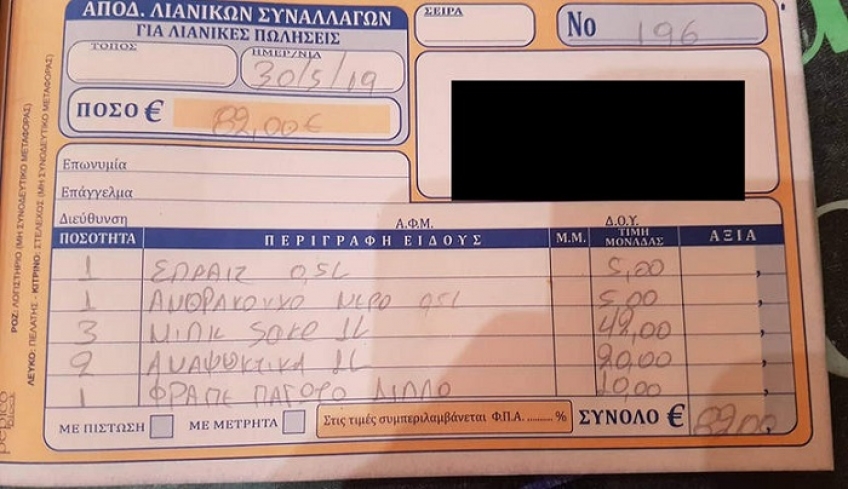 ΑΠΟΔ. ΛΙΑΝΙΚΩΝ ΣΥΝΑΛΛΑΓΩΝ
ΓΙΑ ΛΙΑΝΙΚΕΣ ΠΩΛΗΣΕΙΣ
ΣΕΙΡΑ
Νο 196
ΤΟΠΟΣ
ΗΜΕΡ/ΝΙΑ
30/5/19
ΠΟΣΟ € 82,00€
Επωνυμία
Επάγγελμα
Διεύθυνση Α.Φ.Μ. Δ.Ο.Υ.
ΠΟΣΟΤΗΤΑ ΠΕΡΙΓΡΑΦΗ ΕΙΔΟΥΣ Μ.Μ. ΤΙΜΗ ΜΟΝΑΔΑΣ ΑΞΙΑ
1 ΣΠΡΑΙΤ 0,5L 5,00
1 ΑΝΘΡΑΚΟΥΧΟ ΝΕΡΟ 0,5L 5,00
3 ΜΙΛΚ 1L 42,00
2 ΑΝΑΨΥΚΤΙΚΑ 1L 20,00
1 ΦΡΑΠΕ ΠΑΓΩΤΟ ΔΙΠΛΟ 10,00
ΜΕ ΠΙΣΤΩΣΗ ΜΕ ΜΕΤΡΗΤΑ Στις τιμές συμπεριλαμβάνεται Φ.Π.Α. ......... % ΣΥΝΟΛΟ € 82,00
ΡΟΖ: ΛΟΓΙΣΤΗΡΙΟ (ΜΗ ΣΥΝΟΔΕΥΤΙΚΟ ΜΕΤΑΦΟΡΑΣ)
ΛΕΥΚΟ: ΠΕΛΑΤΗΣ - ΚΙΤΡΙΝΟ: ΣΤΕΛΕΧΟΣ (ΜΗ ΣΥΝΟΔΕΥΤΙΚΟ ΜΕΤΑΦΟΡΑΣ)